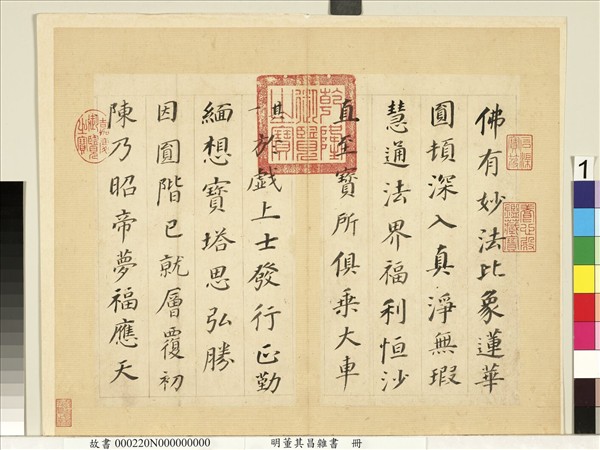 佛有妙法比象蓮華
圓頓深入真淨無瑕
慧通法界福利恒沙
直至寶所俱乘大車
其一於戲上士發行正勤
緬想寶塔思弘勝
因圓階已就層覆初
陳乃昭帝夢福應天
乾隆御覽之寶
嘉慶御覽之寶
養心殿鑑藏寶
1
故書 000220N000000000 明董其昌雜書 冊